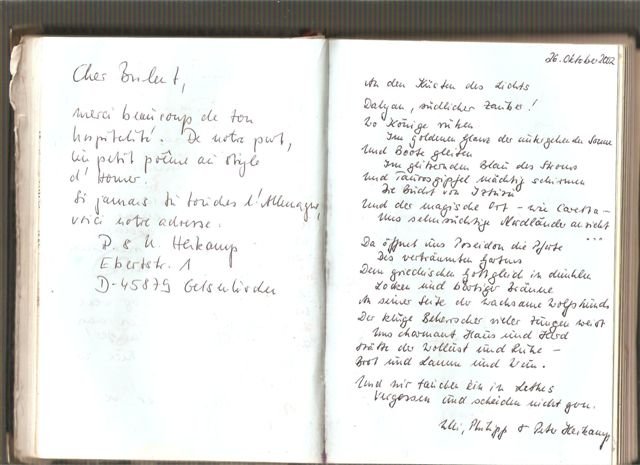 Cher Bulent,
merci beaucoup de ton
hospitalité. De notre part,
un petit poême au style
d'Homer.
Si jamais tu touches l'Allemagne,
voici notre adresse.
P. & U. Herkamp
Ebertstr. 1
D-45879 Gelsenkirchen
26. Oktober 2002
An den Küsten des Lichts
Dalyan, südlicher Zauber!
Wo Könige ruhen
Im goldenen Glanz der untergehenden Sonne
Und Boote gleiten
Im glitzernden Blau des Stroms
Und Taurosgipfel mächtig schirmen
Die Bucht von Iztuzu
Und der magische Ort - wie Caretta -
Uns sehnsüchtige Nordländer anzieht
...
Da öffnet uns Poseidon die Pforte
Des verträumten Gartens
Dem griechischen Gott gleich in dunklen
Locken und bärtiger Bräune
An seiner Seite der wachsame Wolfshund
Der kluge Beherrscher vieler Zungen weist
Uns charmant Haus und Herd
Stätte der Wollust und Ruhe -
Brot und Lamm und Wein.
Und wir tauchen ein in Lethes
Vergessen und scheiden nicht gern.
Ulli, Philipp & Peter Herkamp